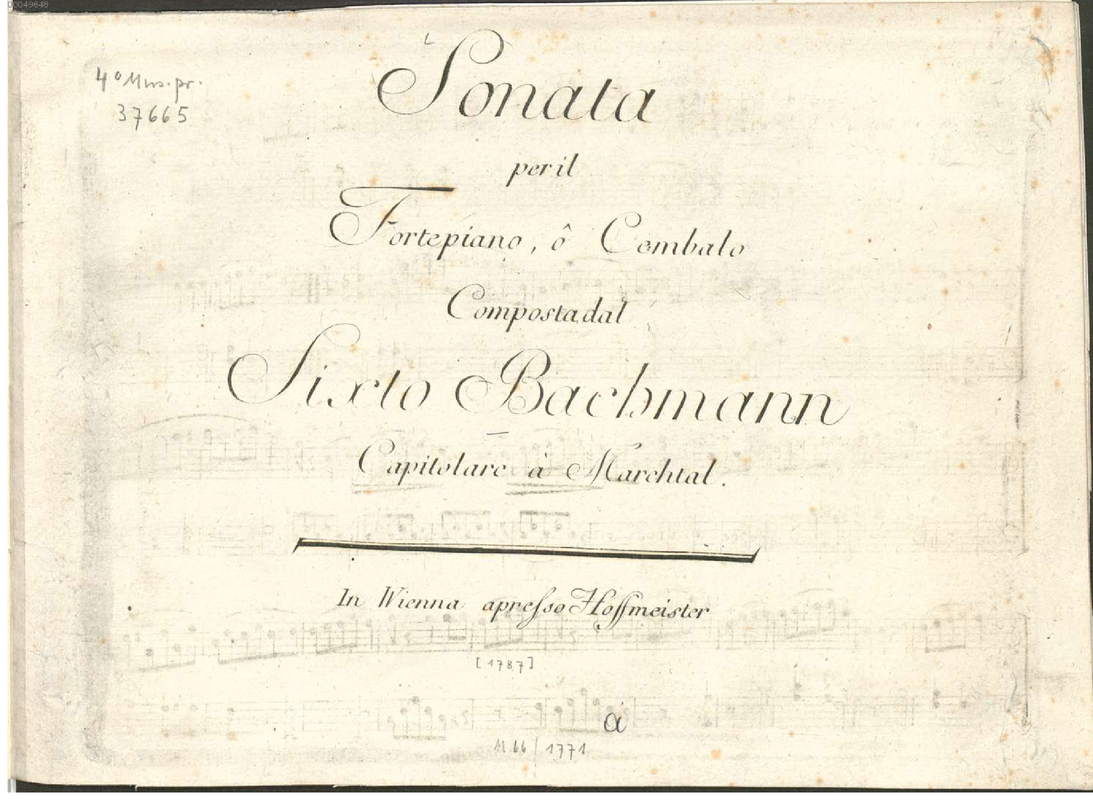 00049648
4° Mus. pr.
37665
Sonata
per il
Fortepiano, ô Cembalo
Composta dal
Sixto Bachmann
Capitolare à Marchtal.
In Wienna apresso Hoffmeister
[1787]
a
1771